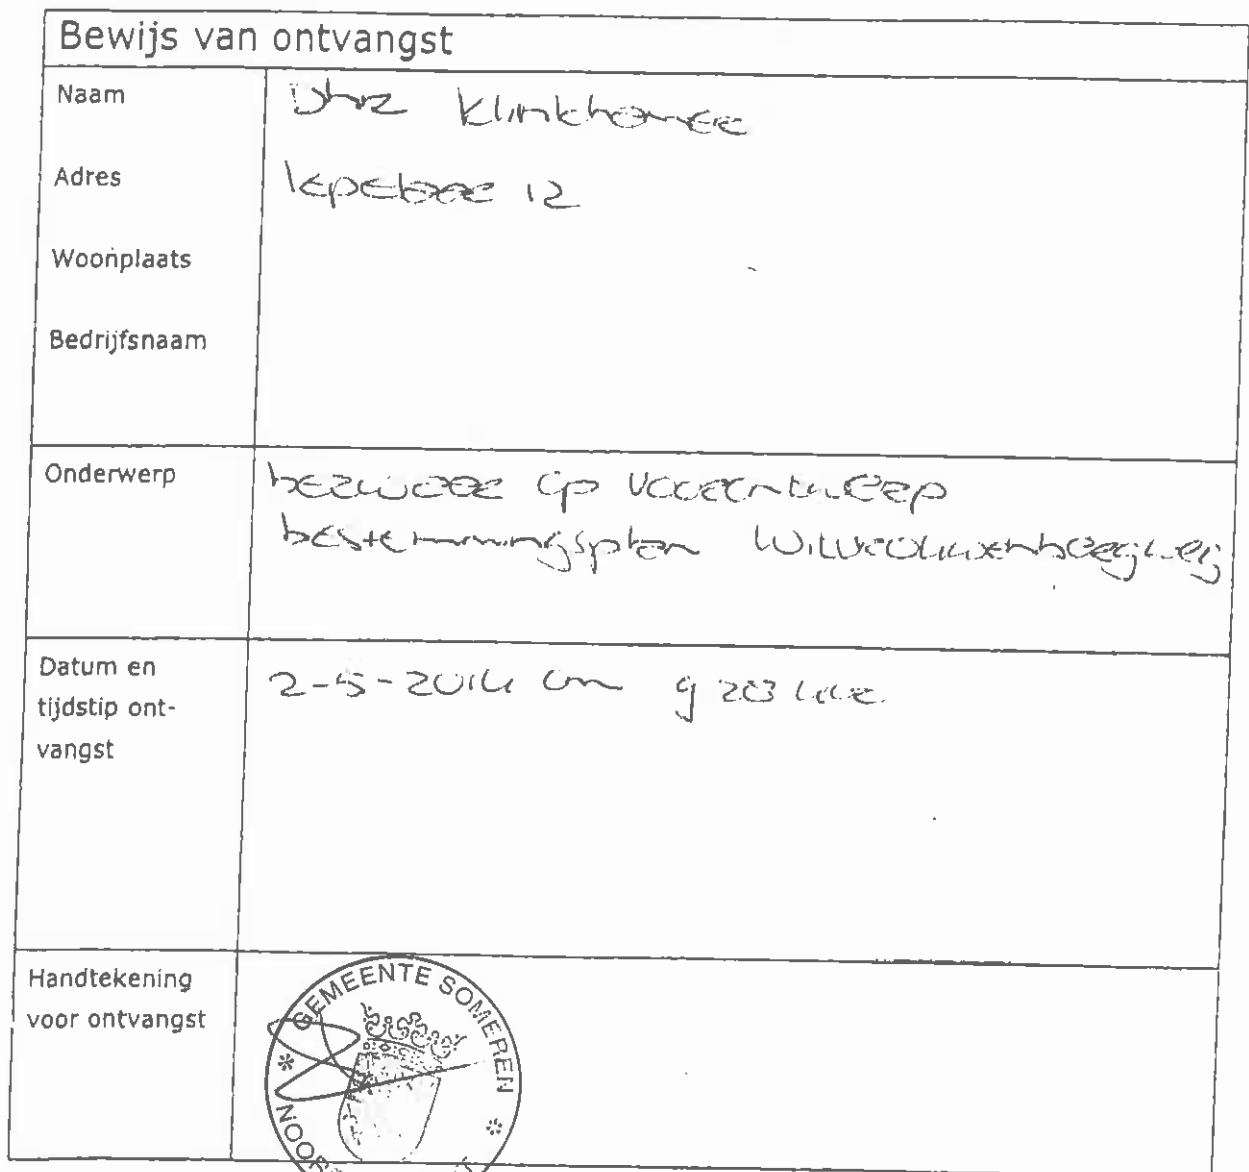 Bewijs van ontvangst
Naam
Dhr Klinkhamer
Adres
12
Woonplaats
Bedrijfsnaam
Onderwerp
bezwaar op voorontwerp
bestemmingsplan
Datum en
tijdstip ont-
vangst
2-5-2014 om
Handtekening
voor ontvangst
GEMEENTE SOMEREN